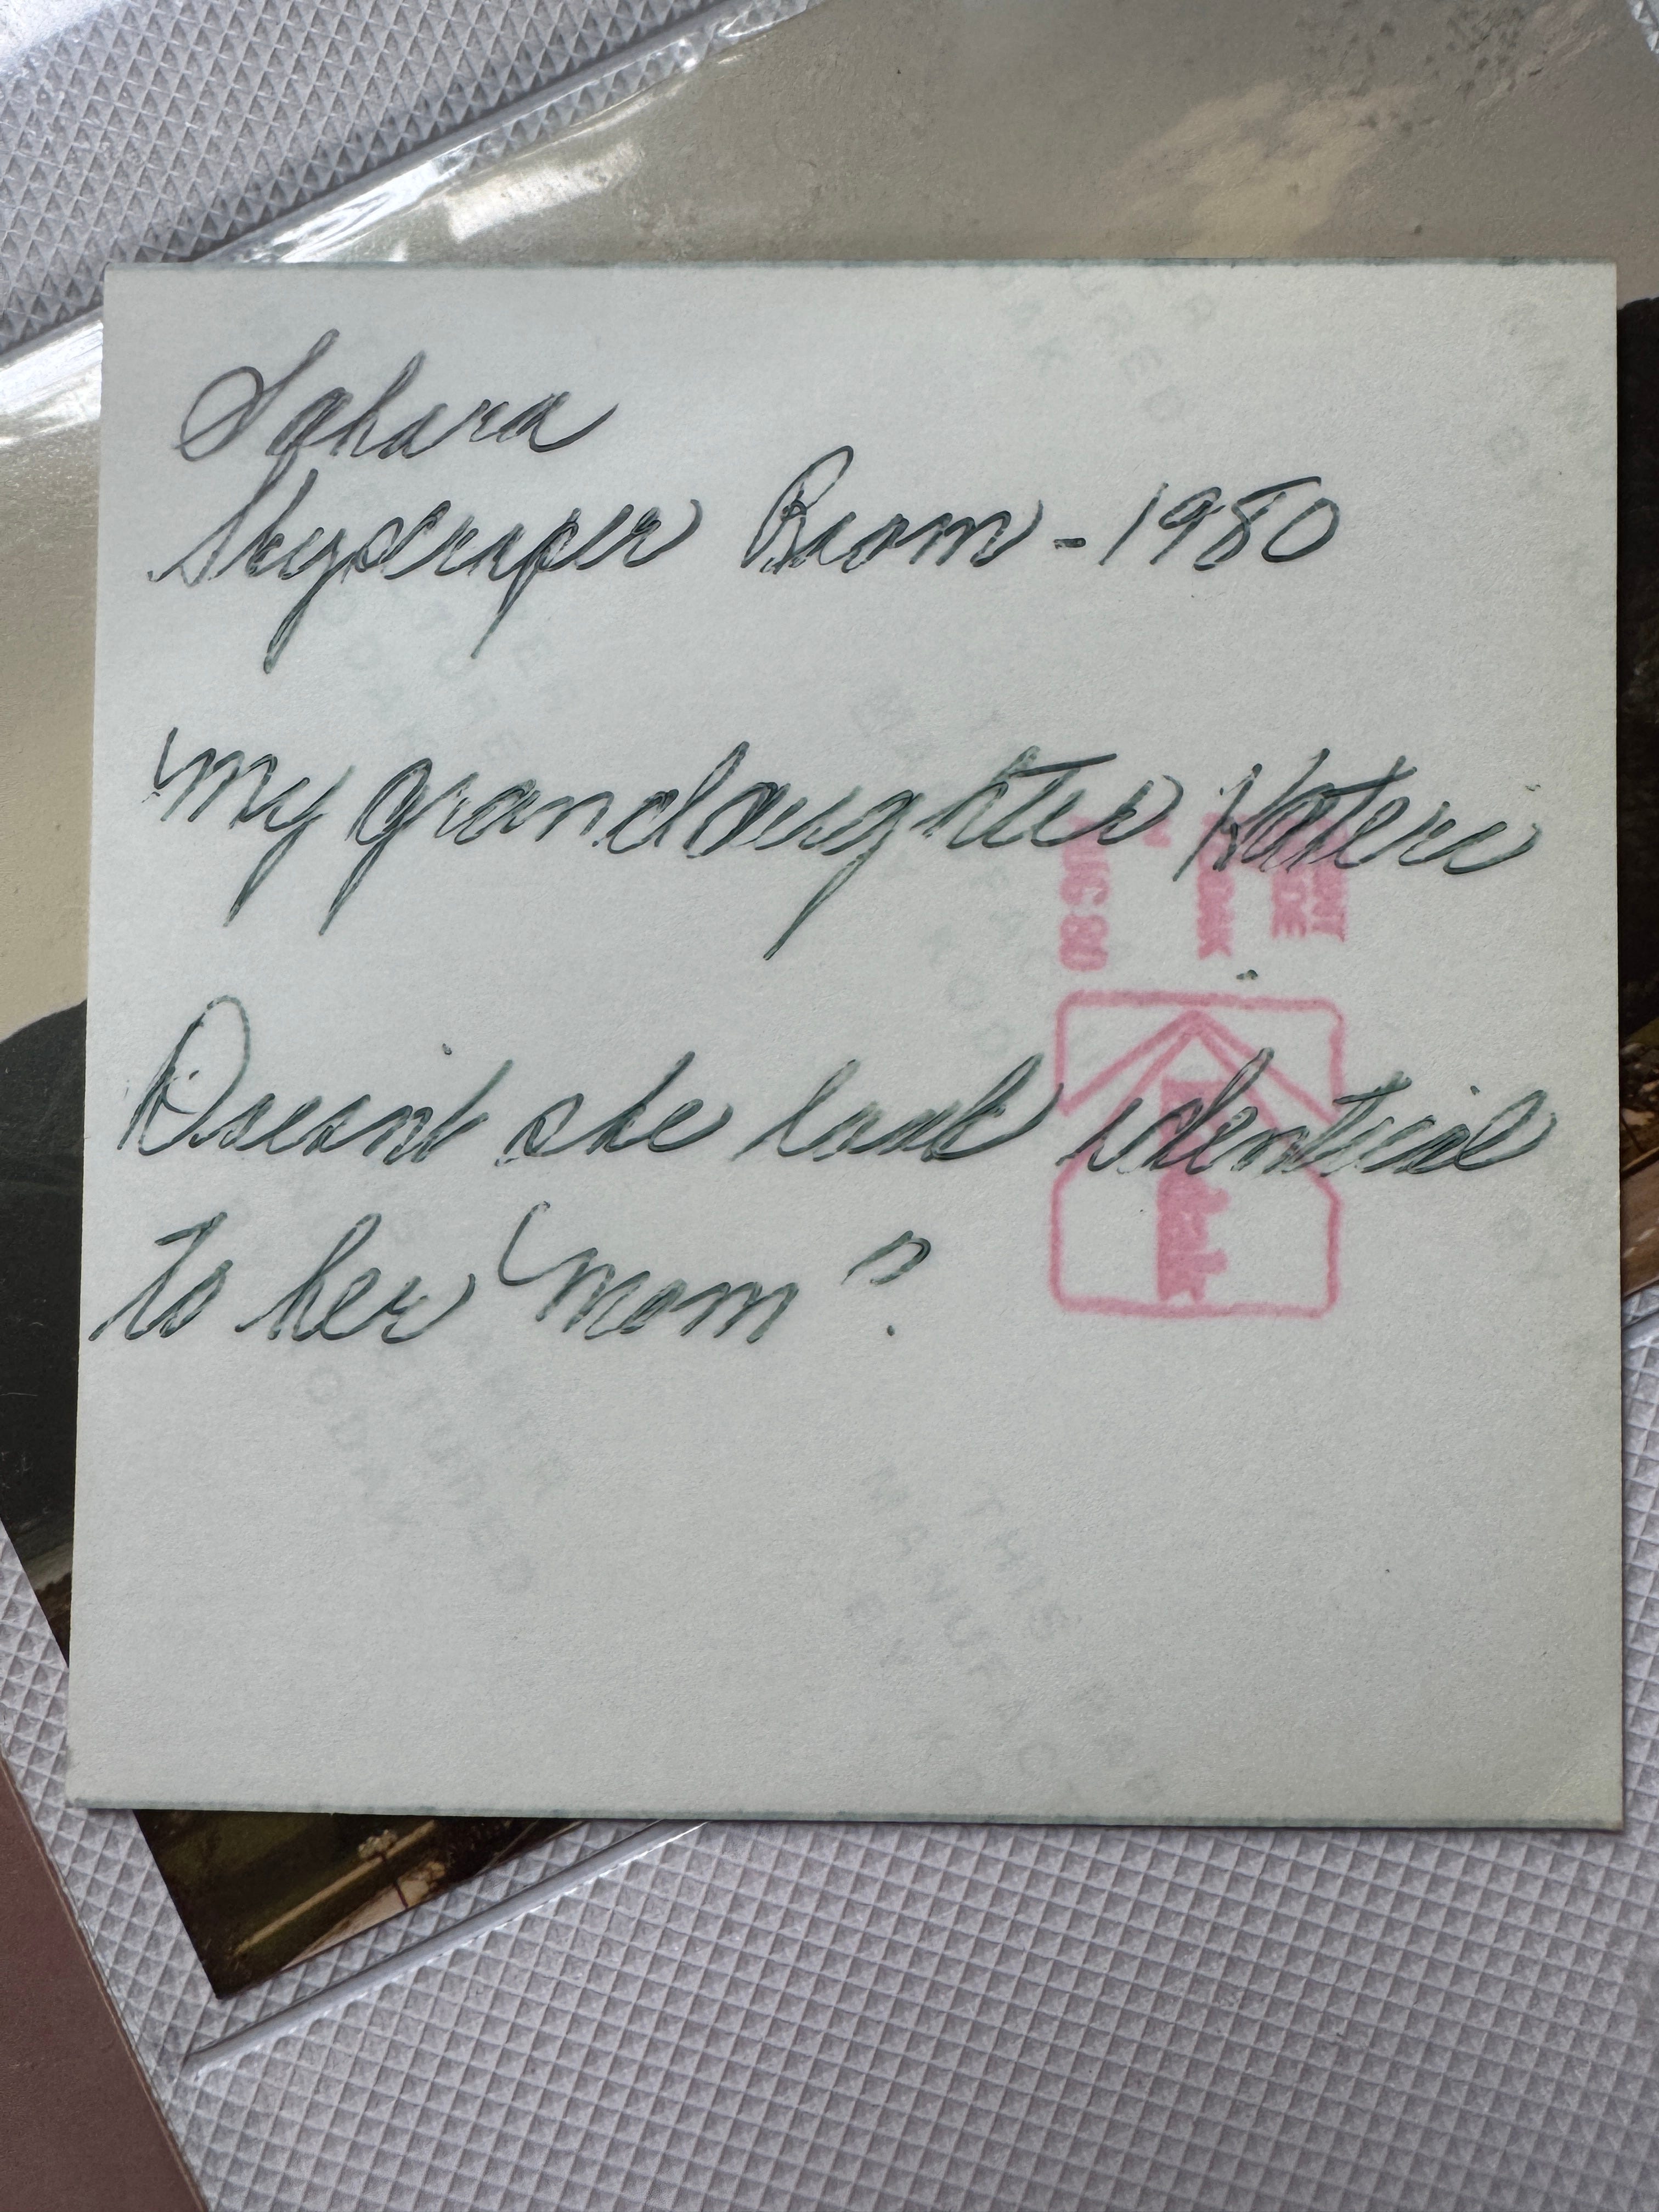 Sahara
Skyscraper Room - 1980
My grandaughter Kateri
Doesn't she look identical
to her "mom"?
AUG 80